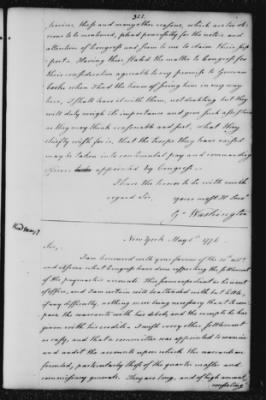 322
these and many other reasons, which are too ob-
vious to be mentioned, plead powerfully for the notice and
attention of Congress and seem to me to claim their sup-
port. Having thus stated the matter to Congress for
their consideration agreeable to my promise to Governor
Cooke when I had the honor of seeing him in my way
here, I shall leave it with them, not doubting but they
will duly weigh its importance and give such
as they may think reasonable and just. What they
chiefly wish for is, that the troops they have raised
may be taken into continental pay and commanding
officers appointed by Congress.
I have the honor to be with much
regard Sir,
your most H. Serv.
G. Washington
New York May 5th 1776
Sir,
I am honoured with your favour of the
and address what Congress have done respecting the settlement
of the paymaster's accounts. This seems expedient as he is out
of office, and I am certain will be attended with but little,
if any difficulty, nothing more being necessary than to com-
pare the warrants with his debits, and the receipts he has
given with his credits. I wish every other settlement
as easy, and that a committee was appointed to examine
and audit the accounts upon which the warrants are
founded, particularly those of the quarter master and
commissary generals. They are long, and of high amount,
consisting